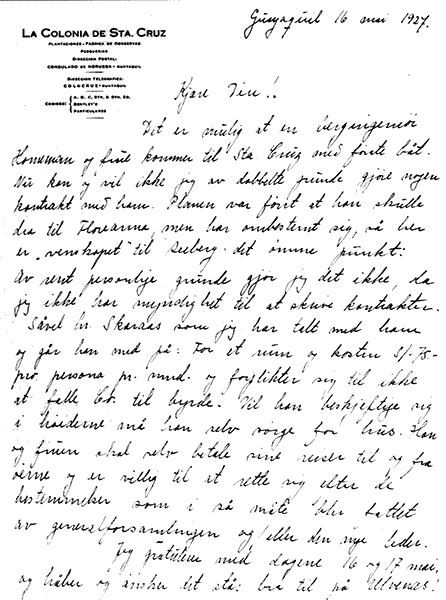 LA COLONIA DE STA. CRUZ
PLANTACIONES - FABRICA DE CONSERVAS
PESQUERIAS
DIRECCION POSTAL:
CONSULADO DE NORUEGA - GUAYAQUIL
DIRECCION TELEGRAFICA:
COLOCRUZ - GUAYAQUIL
CODIGOS: A. B. C. 5TH. & 6TH. ED.
BENTLEY'S
PARTICULARES
Guayaquil 16 mai 1927.
Kjære Dere!!
Det er mulig at en bergingeniør
Horneman og frue kommer til Sta. Cruz med første båt.
Nu kan og vil ikke jeg av dobbelte grunde gjøre nogen
kontrakt med ham. Planen var først at han skulle
dra til Floreanna, men har ombestemt sig, så her
er "venskapet" til Seeberg det ømme punkt.
Av rent personlige grunde gjør jeg det ikke, da
jeg ikke har myndighet til at skrive kontrakter.
Såvel hr. Skaraas som jeg har talt med ham
og går han med på: For et rum og kosten S/-75-
pro persona pr. mnd. og forplikter sig til ikke
at falle Co. til byrde. Vil han beskjeftige sig
i høiderne må han selv sørge for hus. Han
og fruen skal selv betale sine reiser til og fra
øerne og er villig til at rette sig efter de
bestemmelser som i så måte blir fattet
av generalforsamlingen og/eller den nye leder.
Jeg gratulerer med dagene 16 og 17 mai,
og håber og ønsker det står bra til på Ulvenæs.